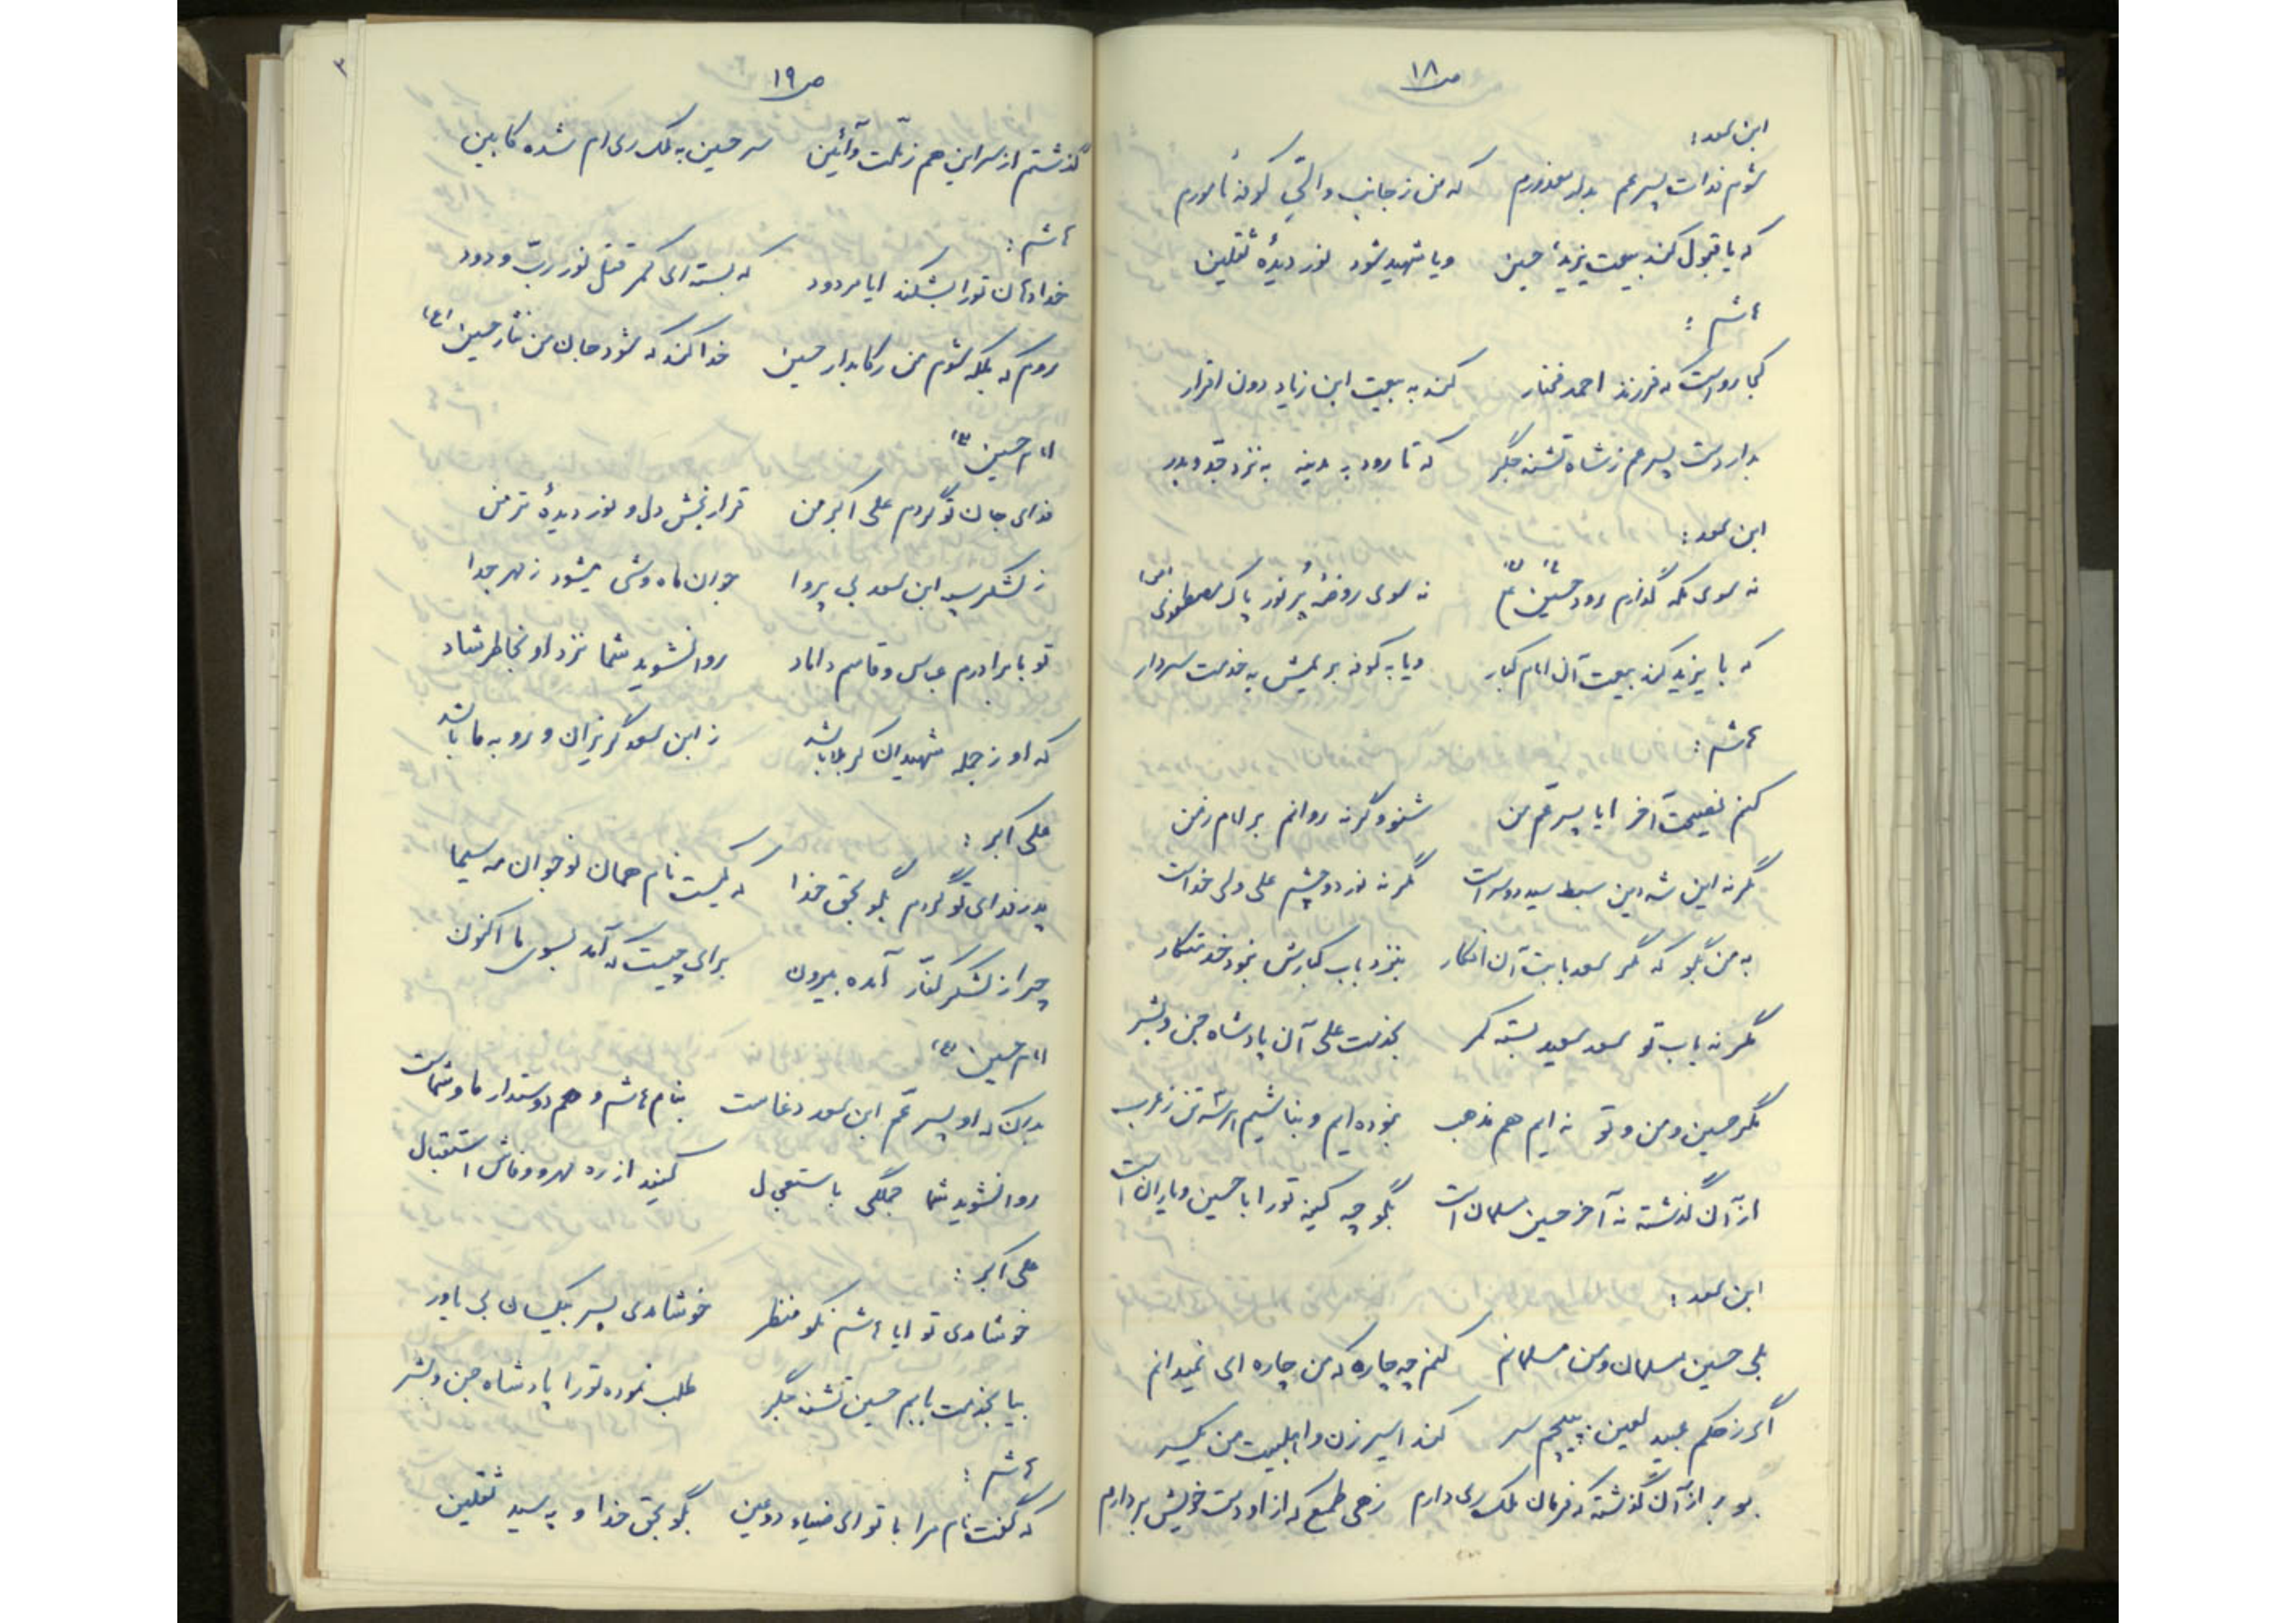 ص۱۸
ابن سعد:
شوم فدات پسر عم بدان معذورم که من ز جانب والی کوفه مأمورم
که یا قبول کند بیعت یزید حسین ویا شهید شود نور دیدهٔ ثقلین
هاشم:
کجا رواست که فرزند احمد مختار کند به بیعت ابن زیاد دون اقرار
بدار دست پسر عم ز شاه تشنه جگر که تا رود به مدینه به نزد جد و پدر
ابن سعد:
نه سوی مکه گذارم رود حسین ع نه سوی روضهٔ پر نور پاک مصطفوی (ص)
که با یزید کند بیعت آن امام کبار ویا به کوفه بریمش به خدمت سردار
هاشم:
کنم نصیحت آخر ایا پسر عم من شنو وگرنه روانم بر امام زمن
مگر نه این شه دین سبط سید دوسراست مگر نه نور دو چشم علی ولی خداست
به من بگو که مگر سعد بابت آن افکار بنزد باب کبارش نبود خدمتکار
مگر نه باب تو سعد سعید بسته کمر بخدمت علی آن پادشاه جن و بشر
مگر حسین و من و تو نه ایم هم مذهب نبوده ایم و بنا شیم از عرب
از آن گذشته نه آخر حسین مسلمان است بگو چه کینه تورا با حسین و یاران است
ابن سعد:
بلی حسین مسلمان و من مسلمانم کنم چه چاره که من چاره ای نمیدانم
اگر ز حکم عبید لعین بپیچم سر کند اسیر زن و اهلبیت من یکسر
از آن گذشته که فرمان ملک ری دارم زهی طمع که از او دست خویش بردارم
ص۱۹
۳
گذشتم از سر این هم ز ملت و آئین سر حسین به ملک ری ام شده کابین
هاشم:
خدا دهان تورا بشکند ایا مردود که بسته ای کمر قتل نور رب ودود
روم که بلکه شوم من رکابدار حسین خدا کند که شود جان من نثار حسین (ع)
امام حسین "ع"
فدای جان تو گردم علی اکبر من قرار بخش دل و نور دیدهٔ تر من
ز لشکر پسر ابن سعد بی پروا جوان ماه وشی میشود ز مهر جدا
تو با برادرم عباس و قاسم داماد روان شوید شما نزد او بخاطر شاد
که او ز جمله شهیدان کربلا باشد ز ابن سعد گریزان و رو به ما باشد
علی اکبر:
پدر فدای تو گردم بگو بحق خدا که کیست نام همان نوجوان مه سیما
چرا ز لشکر کفار آمده بیرون برای چیست که آمد بسوی ما اکنون
امام حسین "ع"
بدان که او پسر عم ابن سعد دغاست بنام هاشم و هم دوستدار ما و شماست
روان شوید شما جملگی باستعجال کنید از ره مهر و وفاش استقبال
علی اکبر:
خوش آمدی تو ایا هاشم نکو منظر خوش آمدی پسر بیکسان بی یاور
بیا بخدمت بابم حسین تشنه جگر طلب نموده تورا پادشاه جن و بشر
هاشم:
که گفت نام مرا با تو ای ضیاء دو عین بگو بحق خدا و به سید ثقلین